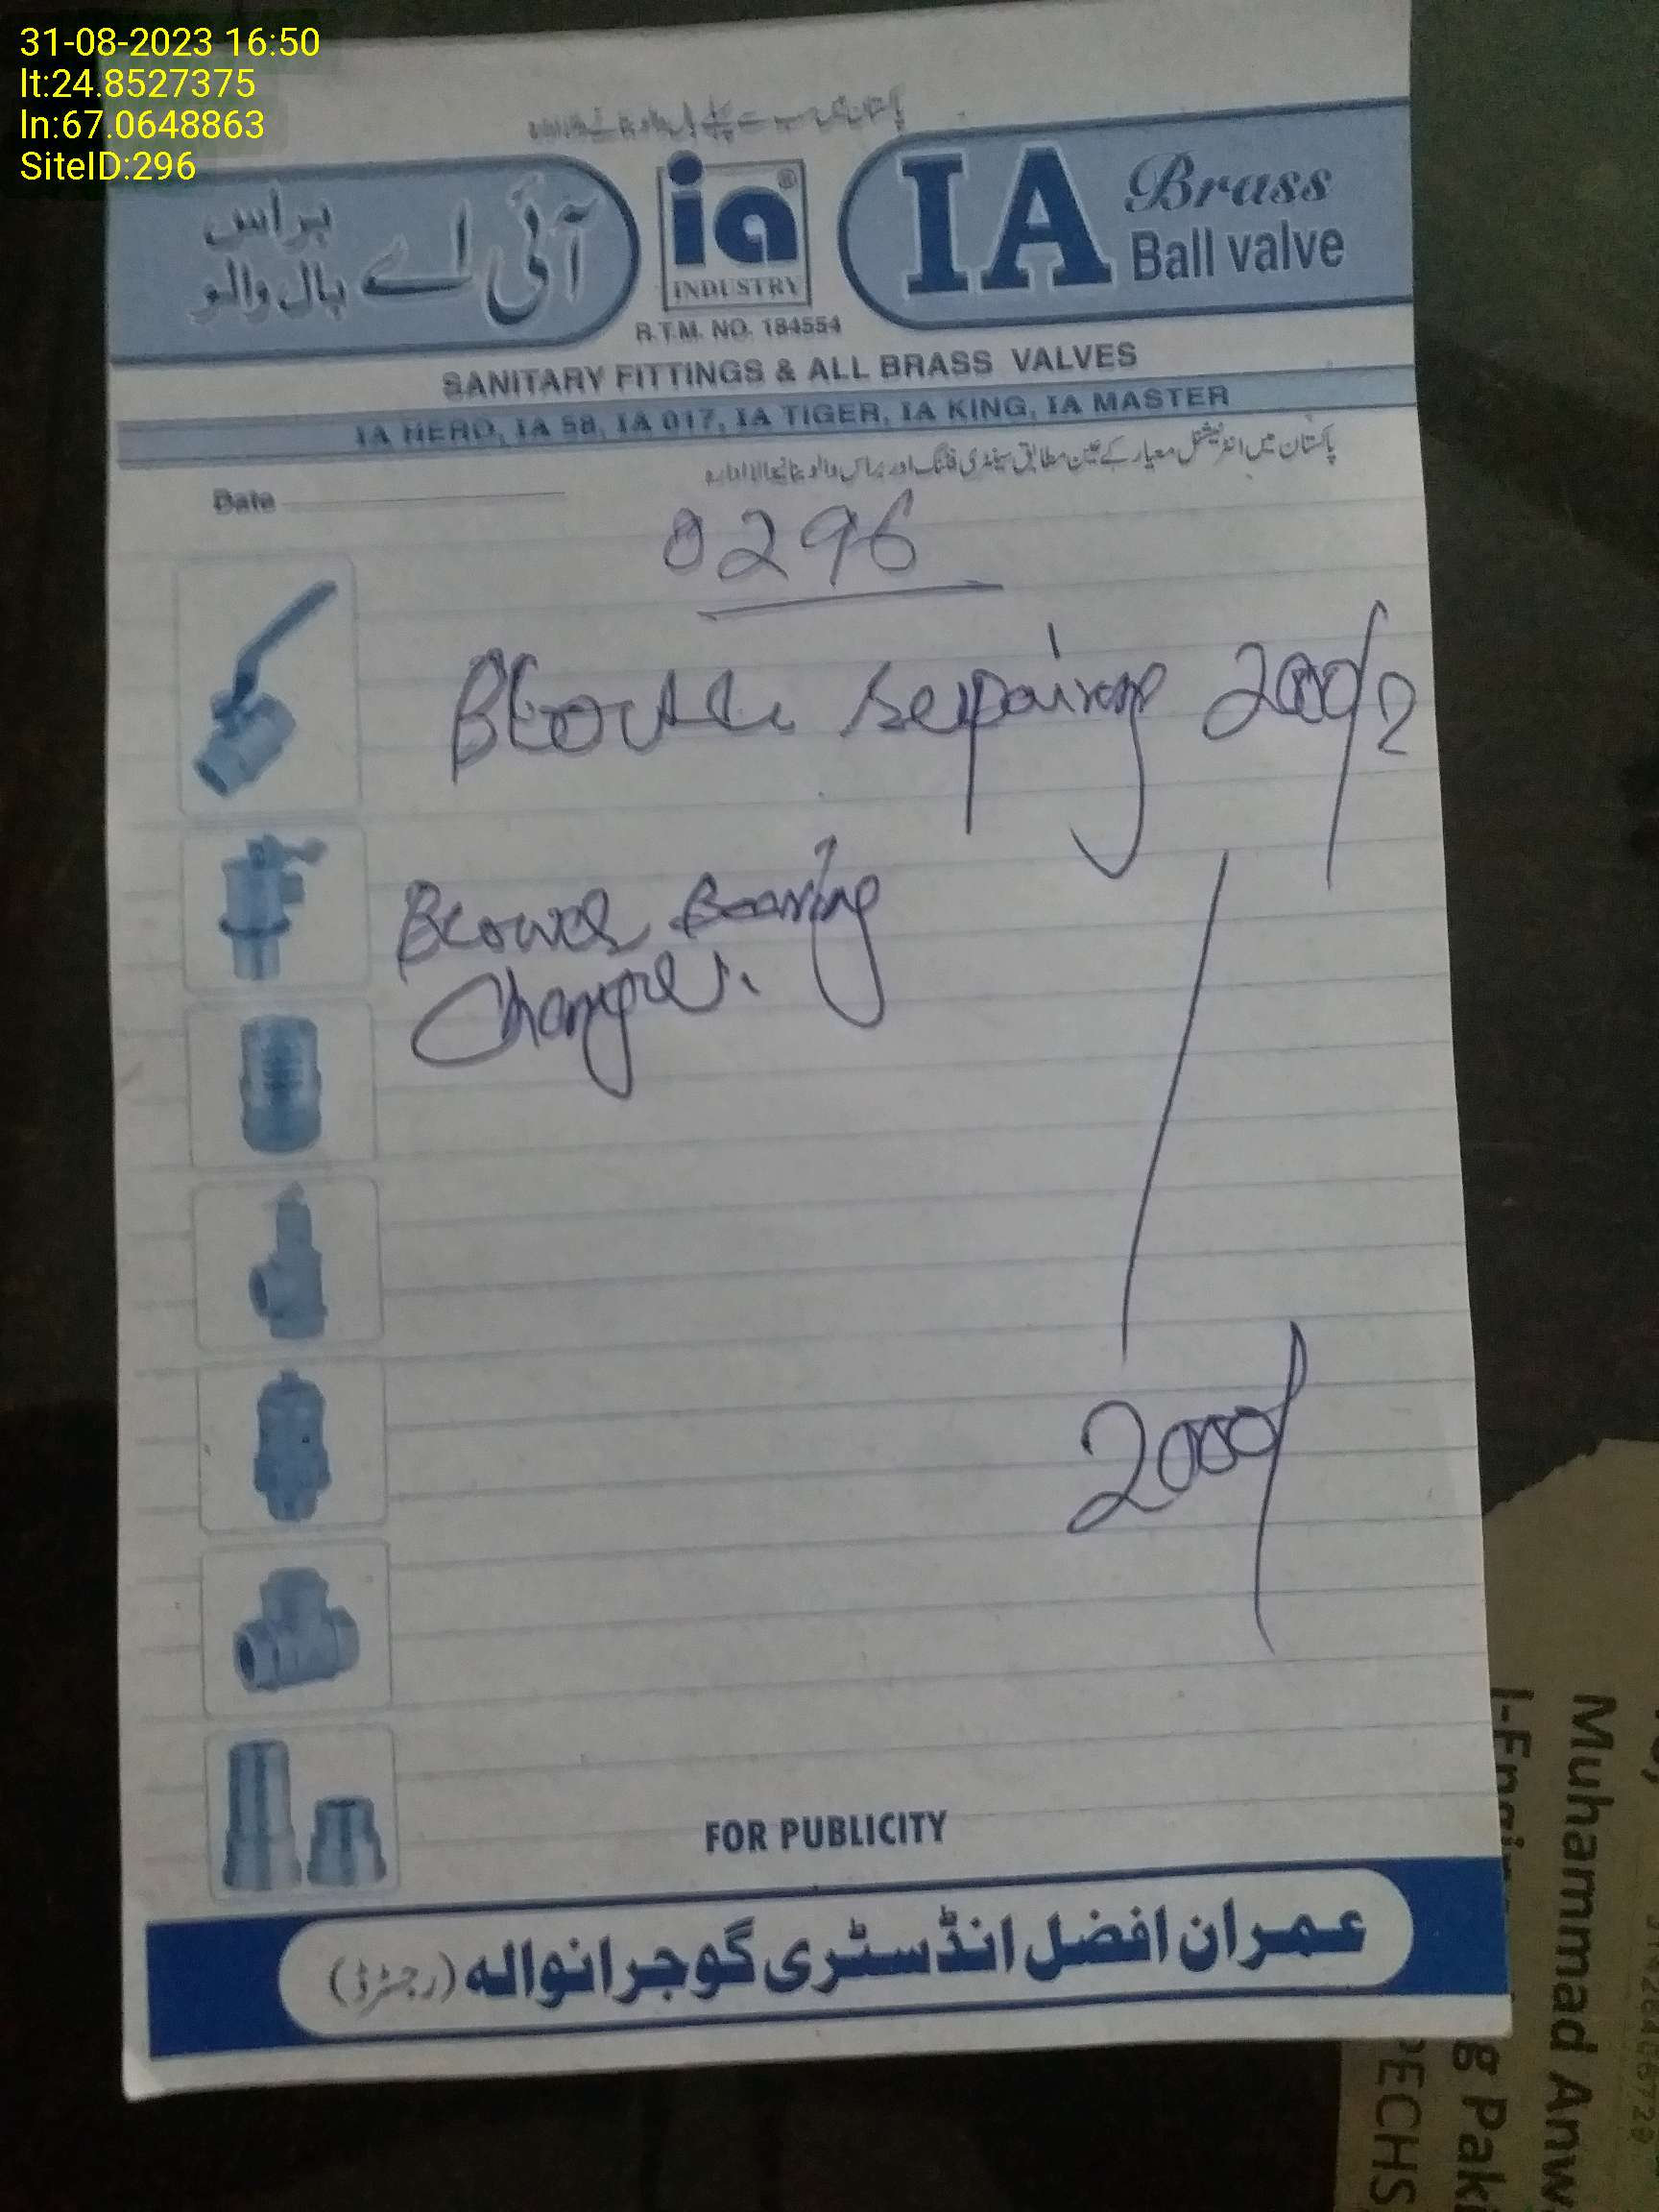 31-08-2023 16:50
lt:24.8527375
ln:67.0648863
SiteID:296
آئی اے براس بال والو
ia®
INDUSTRY
R.T.M. NO. 184554
IA Brass
Ball valve
SANITARY FITTINGS & ALL BRASS VALVES
IA HERO, IA 58, IA 017, IA TIGER, IA KING, IA MASTER
پاکستان میں انٹرنیشنل معیار کے عین مطابق سینٹری فٹنگ اور براس والو بنانیوالا ادارہ
Date
0296
Blower repairing 2000/
Blower Bearing
Change.
2000/
FOR PUBLICITY
عمران افضل انڈسٹری گوجرانوالہ (رجسٹرڈ)
Muhammad Anw
PECHS,